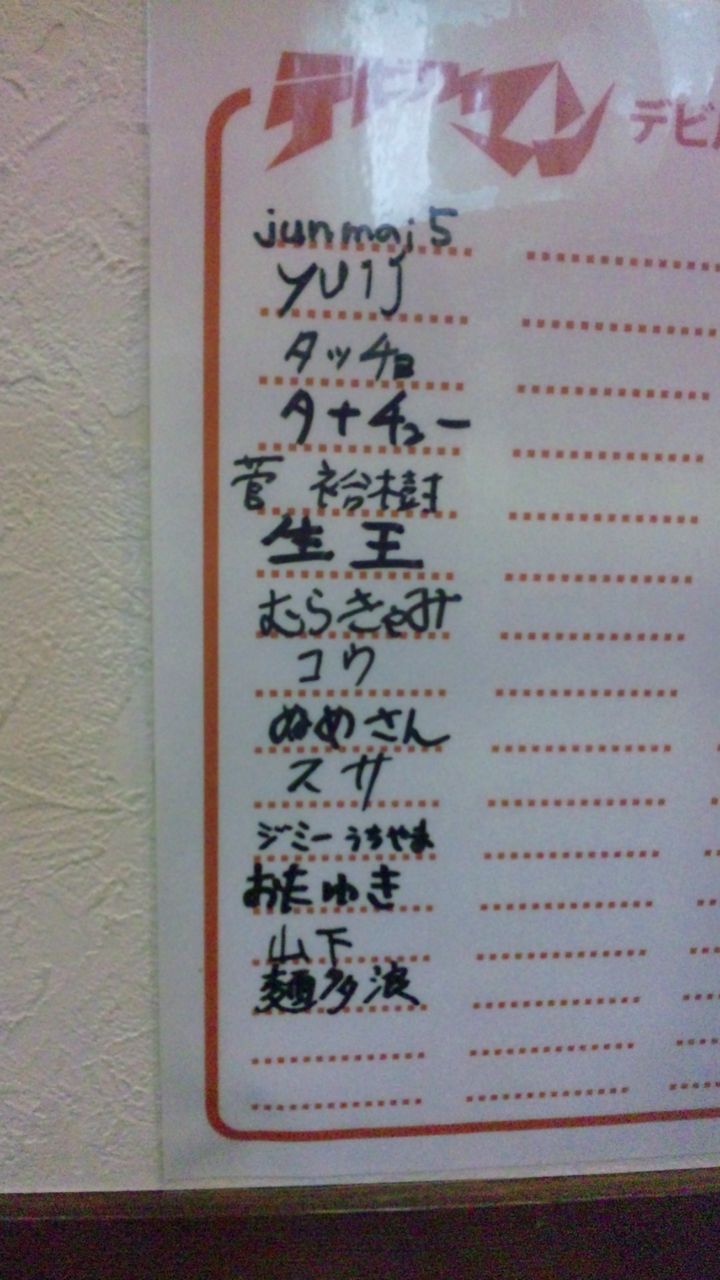 デビルマン デビ
junmai5
YUIJ
タッチョ
タナチュー
菅 裕樹
生王
むらきゃみ
コウ
ぬめさん
スサ
ジミーうちやま
おたゆき
山下
麺多浪